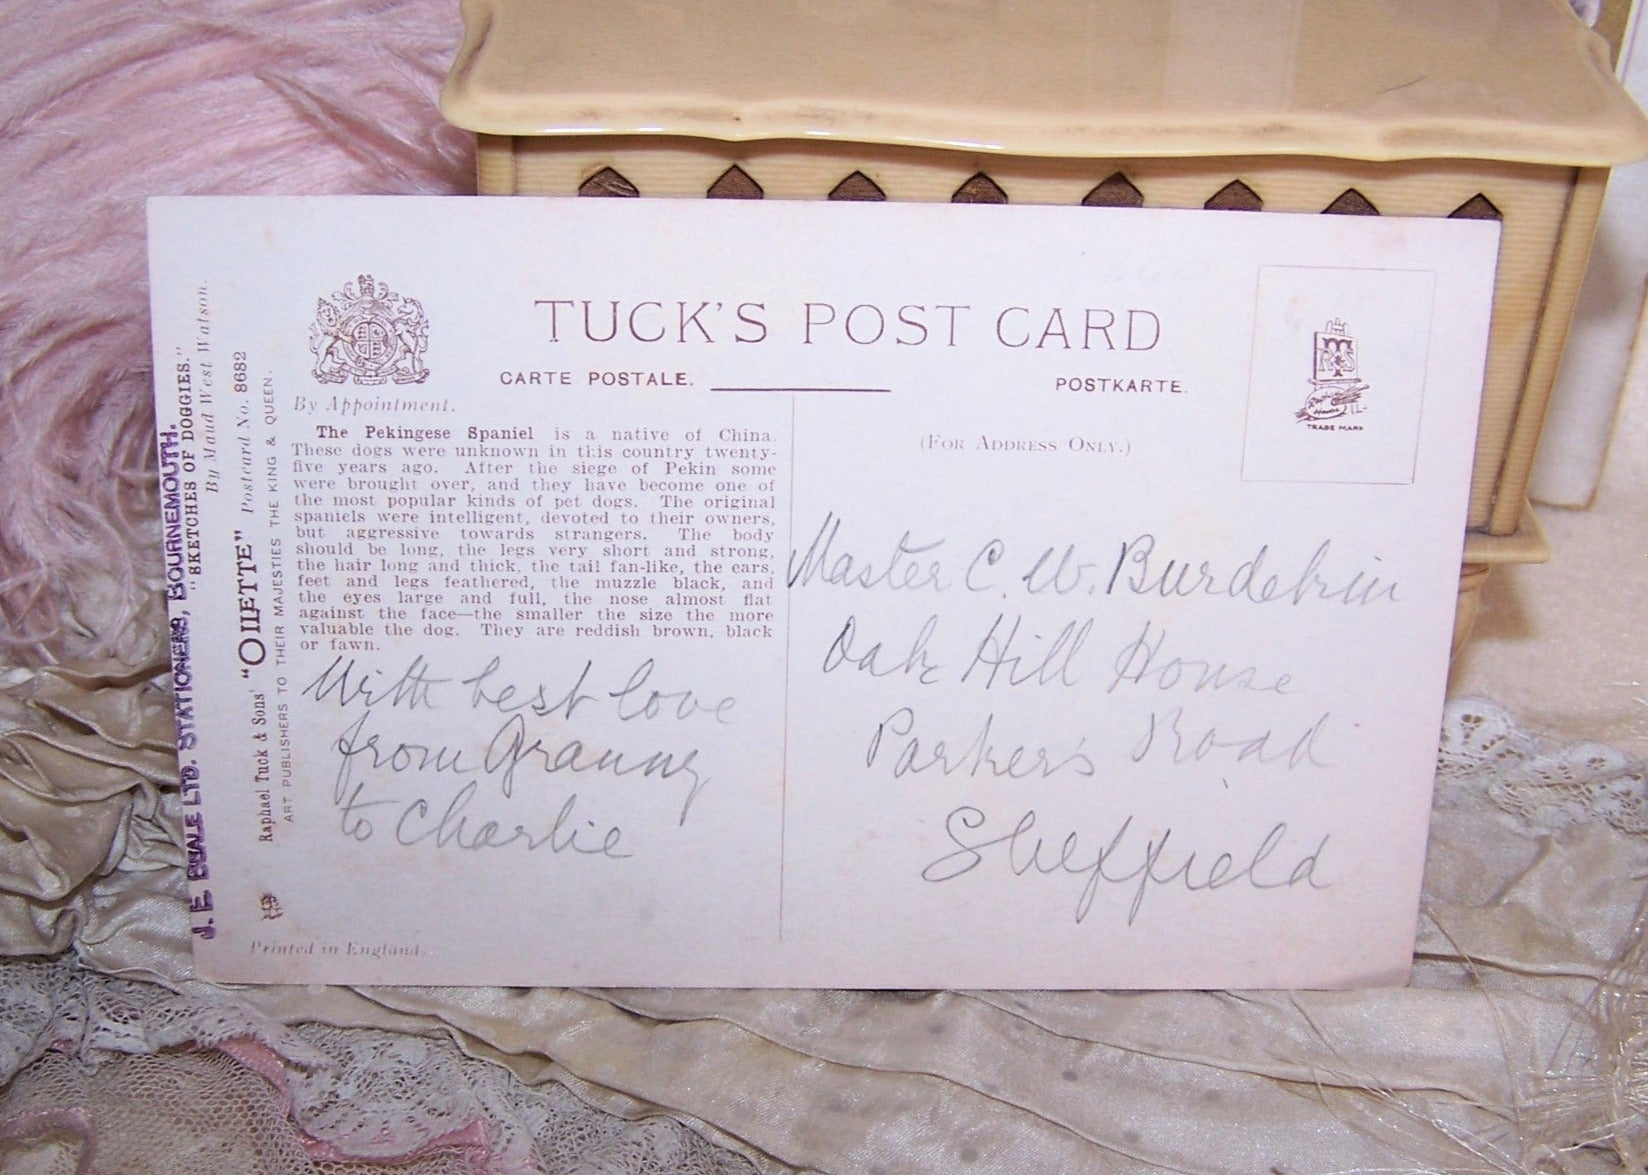 TUCK'S POST CARD
CARTE POSTALE.
POSTKARTE.
By Appointment.
(FOR ADDRESS ONLY.)
TRADE MARK
The Pekingese Spaniel is a native of China.
These dogs were unknown in this country twenty-
five years ago. After the siege of Pekin some
were brought over, and they have become one of
the most popular kinds of pet dogs. The original
spaniels were intelligent, devoted to their owners,
but aggressive towards strangers. The body
should be long, the legs very short and strong,
the hair long and thick, the tail fan-like, the ears,
feet and legs feathered, the muzzle black, and
the eyes large and full, the nose almost flat
against the face—the smaller the size the more
valuable the dog. They are reddish brown, black
or fawn.
With best love
from Granny
to Charlie
Master C. W.
Oak Hill House
Parker's Road
Sheffield
J. E. BEALE LTD. STATIONERS, BOURNEMOUTH.
"SKETCHES OF DOGGIES."
By Maud West Watson.
Raphael Tuck & Sons' "OILETTE" Postcard No. 8682
ART PUBLISHERS TO THEIR MAJESTIES THE KING & QUEEN.
Printed in England.